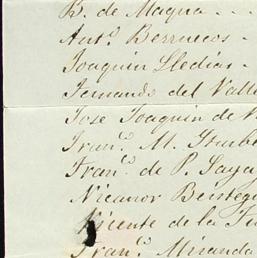 B. de Maqua - - -
Antº. Berruecos -
Joaquin Lledias -
Fernando del Valle
Jose Joaquin de
Franᶜᵒ. M. Iturbe
Franᶜᵒ. de P. Saya
Nicanor Beistegui
Vicente de la Fu
Franᶜᵒ. Miranda